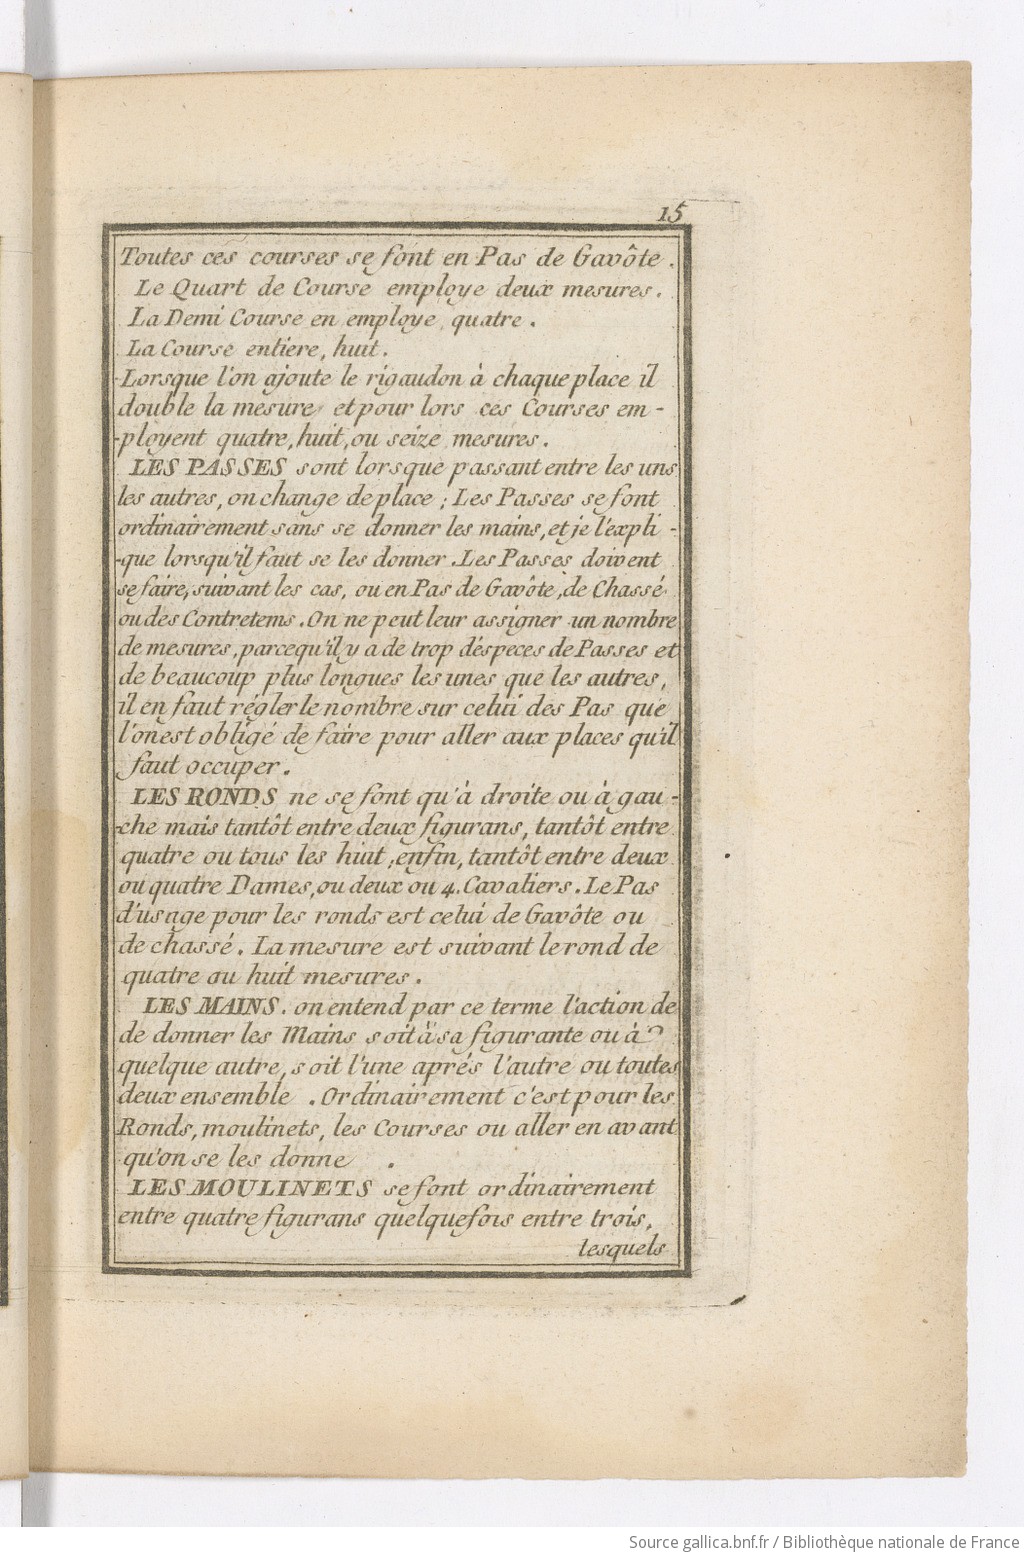 15
Toutes ces courses se font en Pas de Gavôte.
Le Quart de Course employe deux mesures.
La Demi Course en employe quatre.
La Course entiere, huit.
Lorsque l'on ajoute le rigaudon à chaque place il
double la mesure et pour lors ces Courses em-
-ployent quatre, huit, ou seize mesures.
LES PASSES sont lorsque passant entre les uns
les autres, on change de place; Les Passes se font
ordinairement sans se donner les mains, et je l'expli-
-que lorsqu'il faut se les donner. Les Passes doivent
se faire, suivant les cas, ou en Pas de Gavôte, de Chassé
ou des Contretems. On ne peut leur assigner un nombre
de mesures, parcequ'il y a de trop déspeces de Passes et
de beaucoup plus longues les unes que les autres,
il en faut régler le nombre sur celui des Pas que
l'on est obligé de faire pour aller aux places qu'il
faut occuper.
LES RONDS ne se font qu'à droite ou à gau-
-che mais tantôt entre deux figurans, tantôt entre
quatre ou tous les huit, enfin, tantôt entre deux
ou quatre Dames, ou deux ou 4. Cavaliers. Le Pas
d'usage pour les ronds est celui de Gavôte ou
de chassé. La mesure est suivant le rond de
quatre ou huit mesures.
LES MAINS. on entend par ce terme l'action de
de donner les Mains soit à sa figurante ou à
quelque autre, soit l'une aprés l'autre ou toutes
deux ensemble. Ordinairement c'est pour les
Ronds, moulinets, les Courses ou aller en avant
qu'on se les donne.
LES MOULINETS se font ordinairement
entre quatre figurans quelquefois entre trois,
lesquels
Source gallica.bnf.fr / Bibliothèque nationale de France